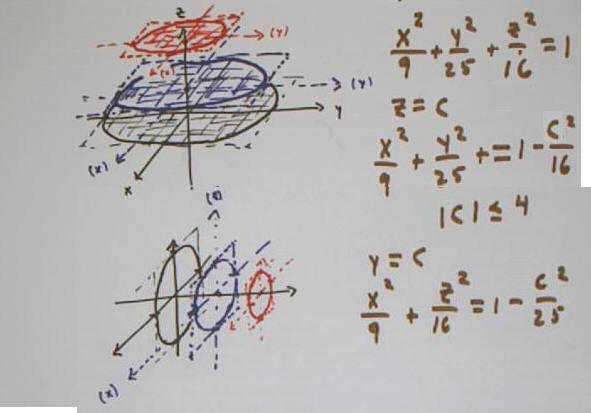 z
(y)
(y)
y
(x)
x
(z)
(x)
x²/9 + y²/25 + z²/16 = 1
z = c
x²/9 + y²/25 + = 1 - c²/16
|c| ≤ 4
y = c
x²/9 + z²/16 = 1 - c²/25